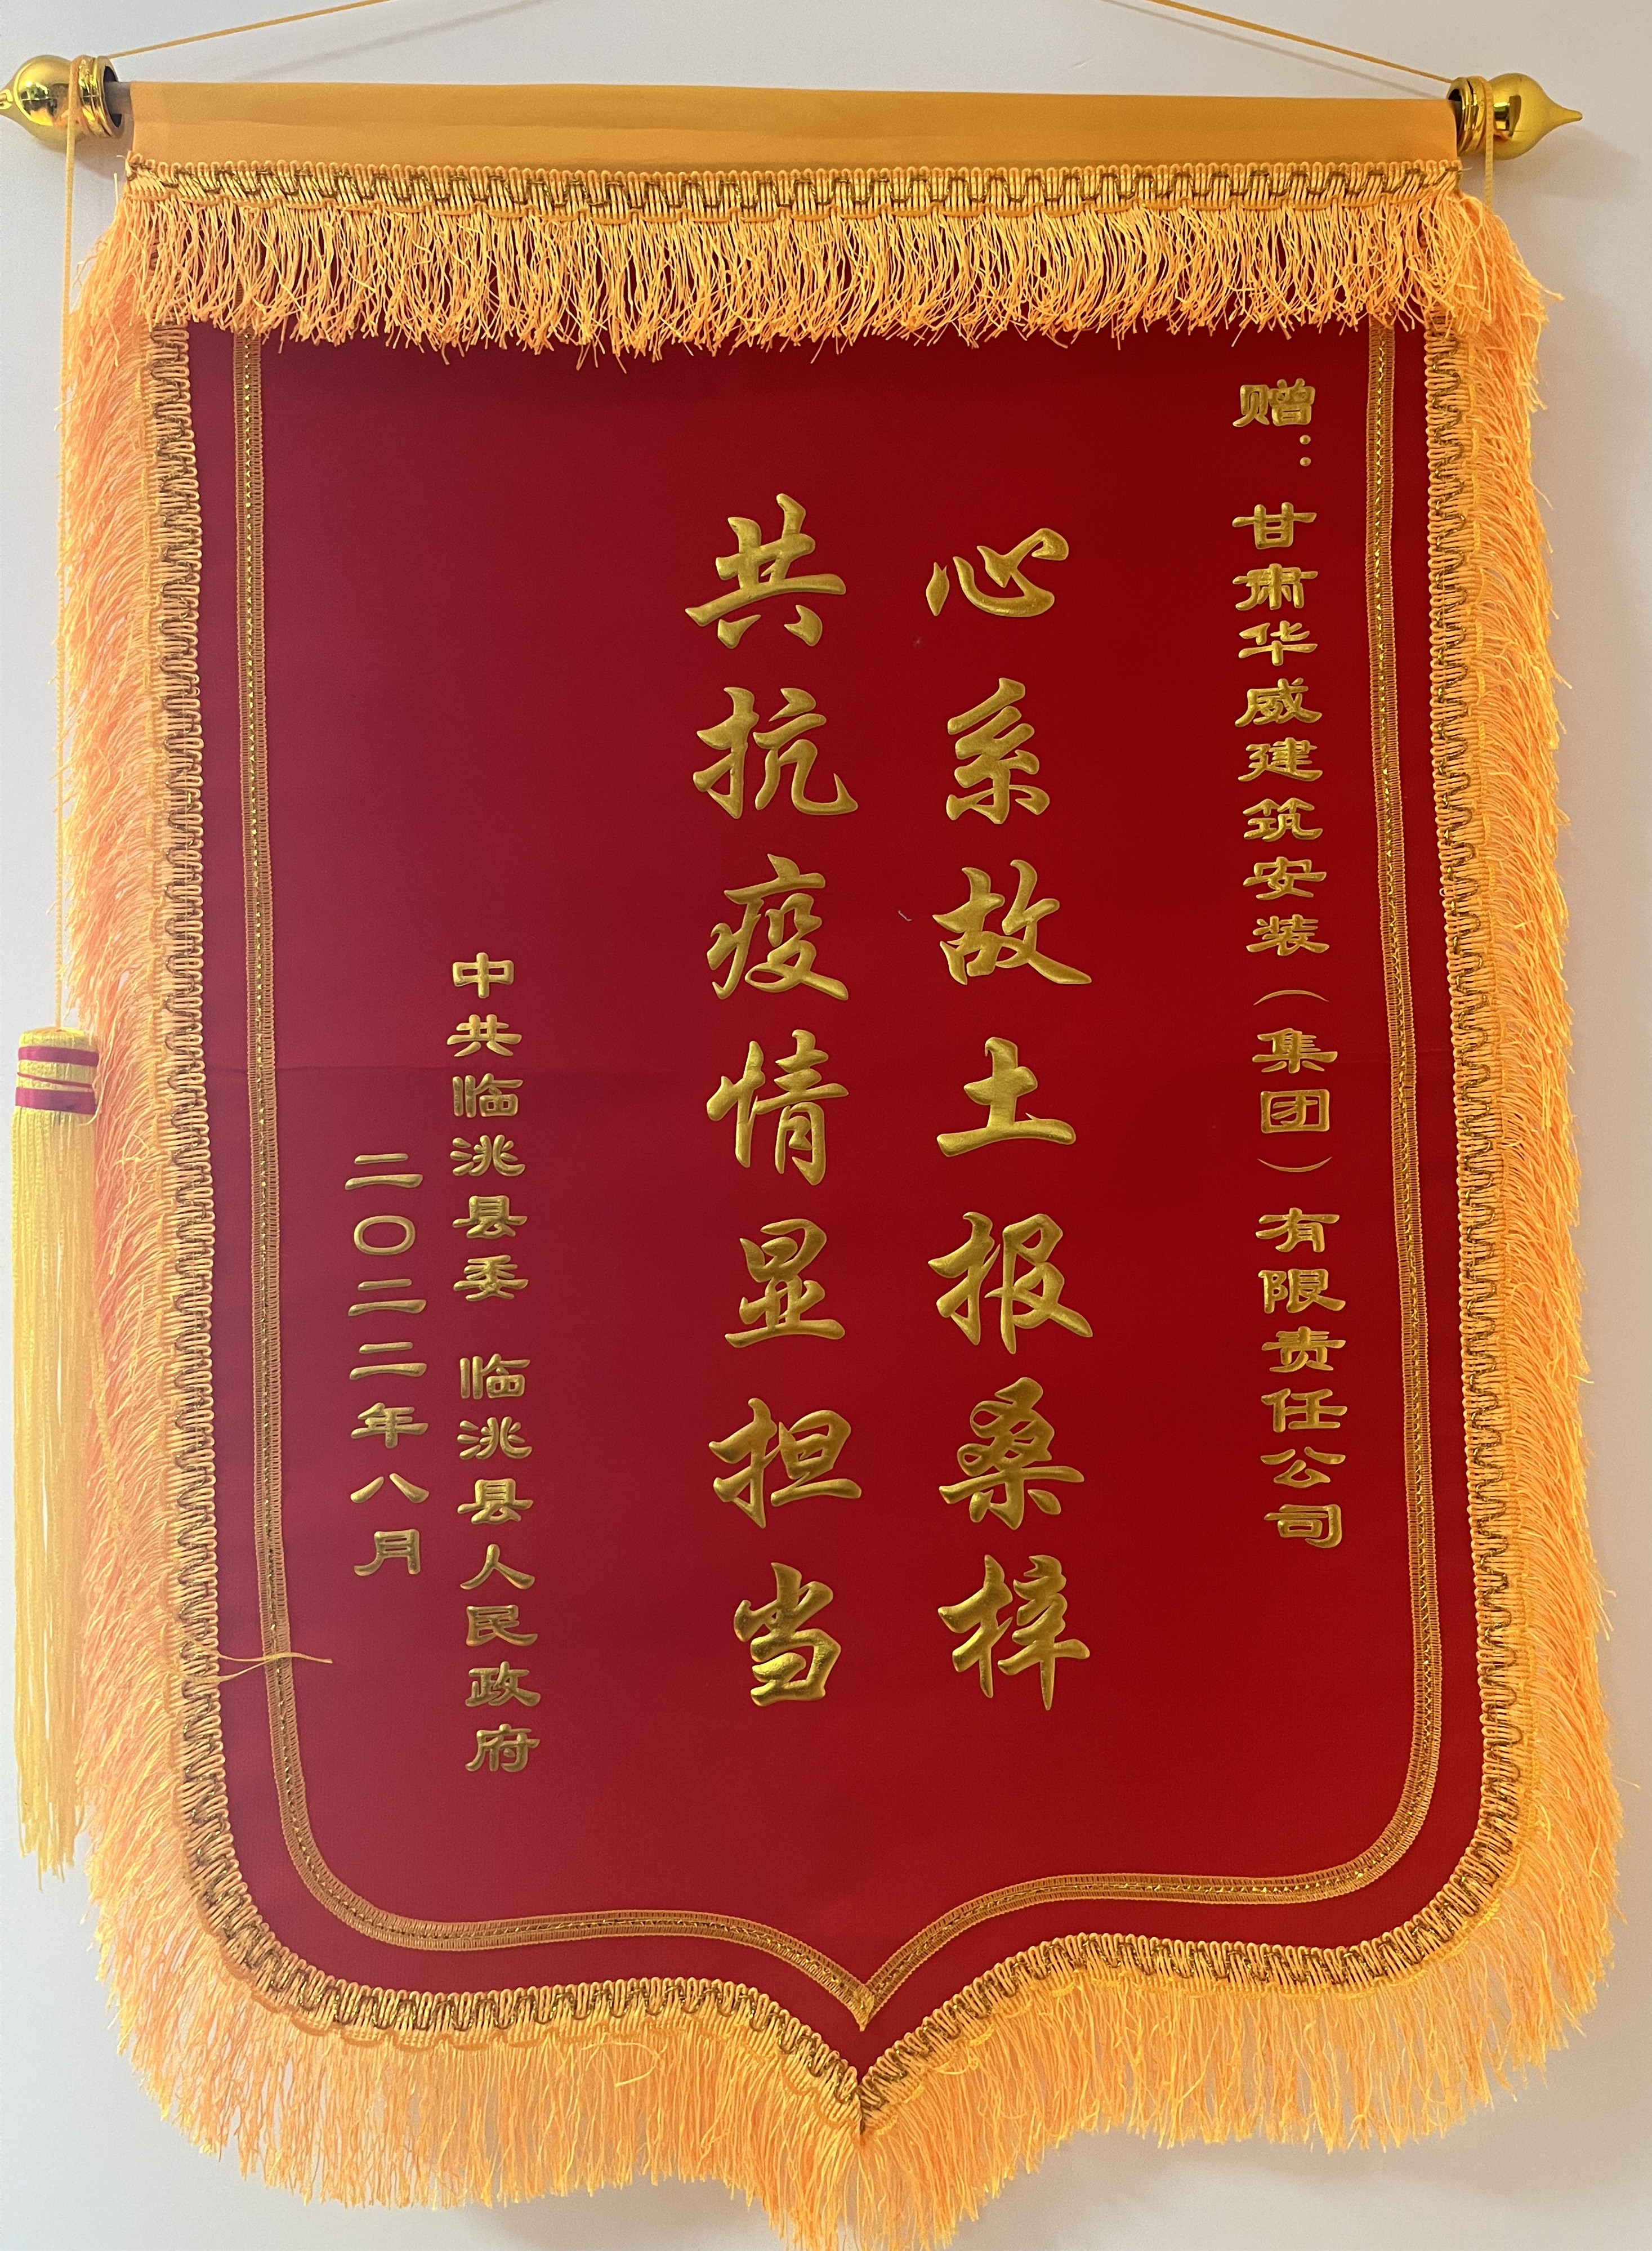 赠：甘肃华威建筑安装（集团）有限责任公司
心系故土报桑梓
共抗疫情显担当
中共临洮县委 临洮县人民政府
二〇二二年八月